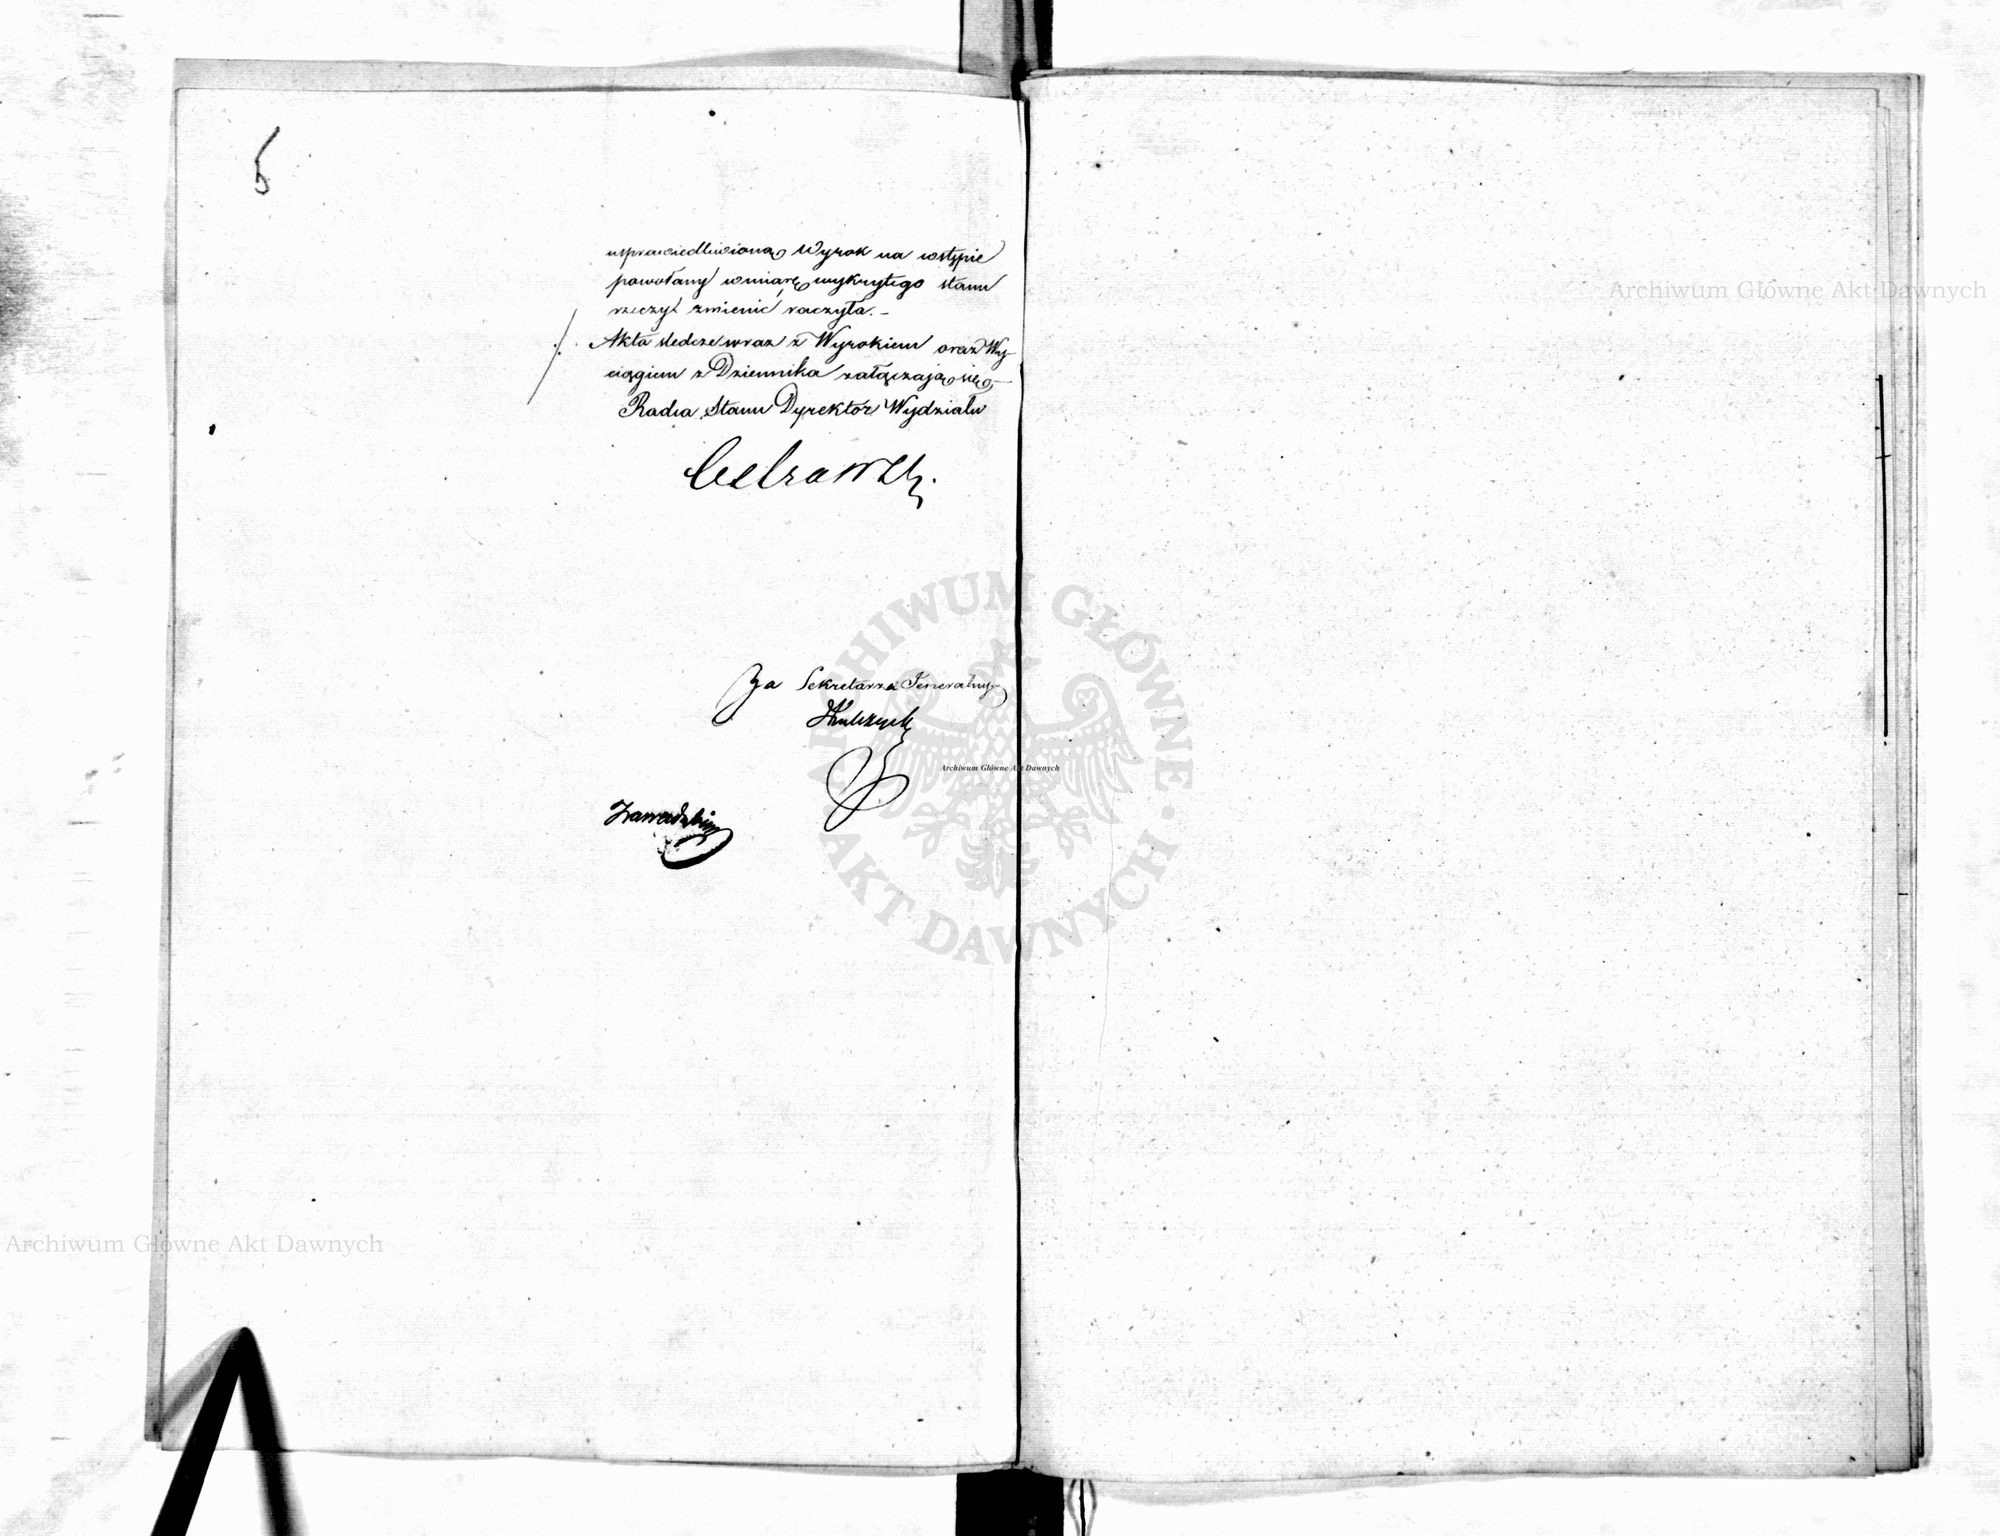 5
usprawiedliwioną Wyrok na wstępie
powołany w miarę wykrytego stanu
rzeczy zmienić raczyła. –
Akta śledcze wraz z Wyrokiem oraz Wy-
ciągiem z Dziennika załączają się –
Radca Stanu Dyrektor Wydziału
Za Sekretarza Generalnego
Archiwum Główne Akt Dawnych
Archiwum Główne Akt Dawnych
ARCHIWUM GŁÓWNE AKT DAWNYCH
Archiwum Główne Akt Dawnych